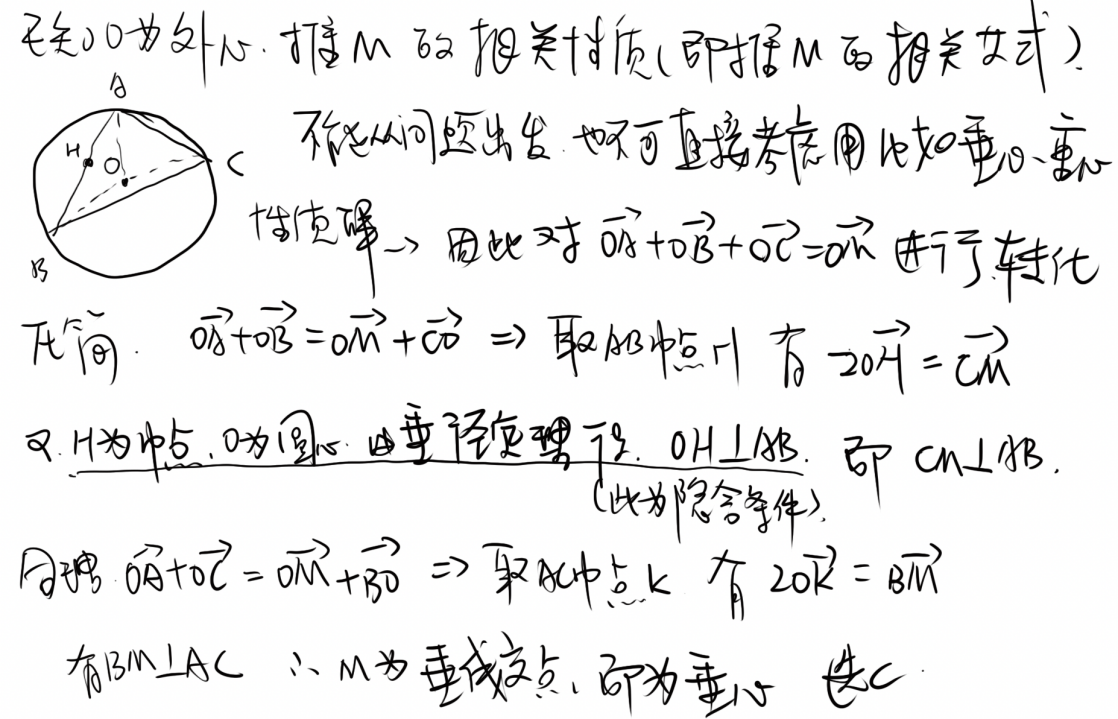 已知O为外心.推M的相关性质(即推M的相关女式).
A
H
O
C
B
不能从问题出发.也不可直接考虑用比如垂心、重心
性质解→因此对 $\overrightarrow{OA}+\overrightarrow{OB}+\overrightarrow{OC}=\overrightarrow{OM}$ 进行转化
化简. $\overrightarrow{OA}+\overrightarrow{OB}=\overrightarrow{OM}+\overrightarrow{CO}$ ⇒ 取AB中点H 有 $2\overrightarrow{OH}=\overrightarrow{CM}$
又.H为中点,O为圆心.由垂径定理可得. OH⊥AB. 即 CM⊥AB.
(此为隐含条件).
同理. $\overrightarrow{OA}+\overrightarrow{OC}=\overrightarrow{OM}+\overrightarrow{BO}$ ⇒ 取AC中点K 有 $2\overrightarrow{OK}=\overrightarrow{BM}$
有BM⊥AC ∴M为垂线交点,即为垂心 选C.